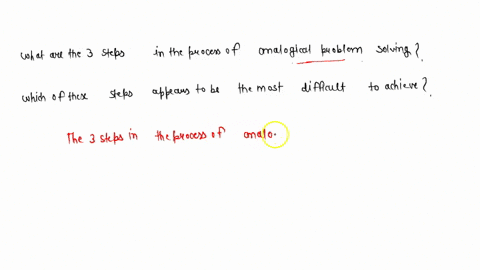 what are the 3 steps in the process of analogical problem solving?
which of these steps appears to be the most difficult to achieve?
The 3 steps in the process of analo.